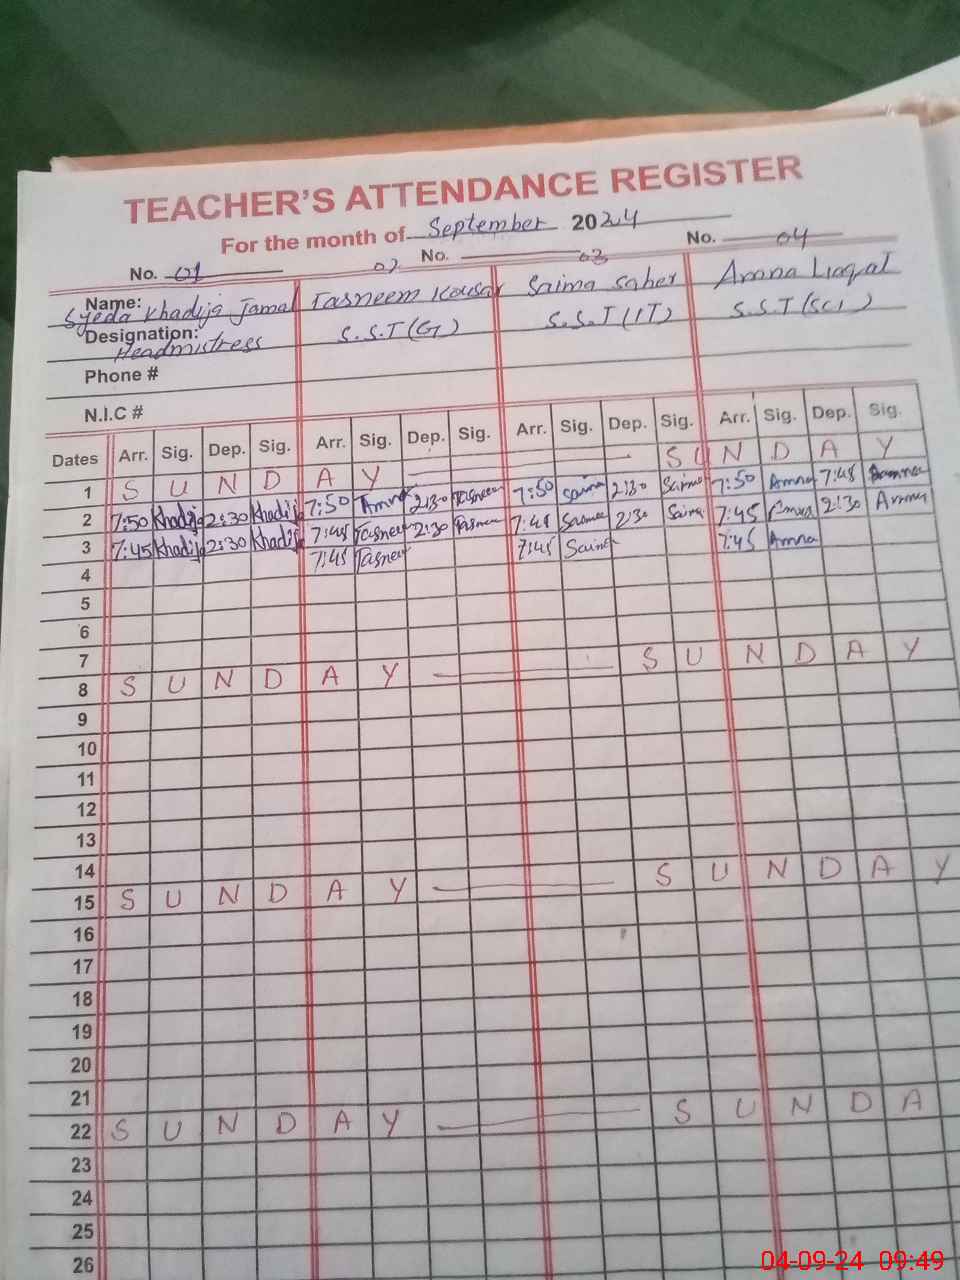 TEACHER'S ATTENDANCE REGISTER
For the month of September 2024
No. 01 02 No. 03 No. 04
Name: Syeda Khadija Jamal Tasneem Kousar Saima Saher Amna Liaqat
Designation: Headmistress S.S.T (G) S.S.T (IT) S.S.T (SCI)
Phone #
N.I.C #
Dates Arr. Sig. Dep. Sig. Arr. Sig. Dep. Sig. Arr. Sig. Dep. Sig. Arr. Sig. Dep. Sig.
1 S U N D A Y S U N D A Y
2 7:50 Khadija 2:30 Khadija 7:50 Amna 2:30 Tasneem 7:50 Saima 2:30 Saima 7:50 Amna 7:45 Amna
3 7:45 Khadija 2:30 Khadija 7:45 Tasneem 2:30 Tasneem 7:45 Saima 2:30 Saima 7:45 Amna 2:30 Amna
4 7:45 Tasneem 7:45 Saima 7:45 Amna
5
6
7
8 S U N D A Y S U N D A Y
9
10
11
12
13
14
15 S U N D A Y S U N D A Y
16
17
18
19
20
21
22 S U N D A Y S U N D A
23
24
25
26
04-09-24 09:49